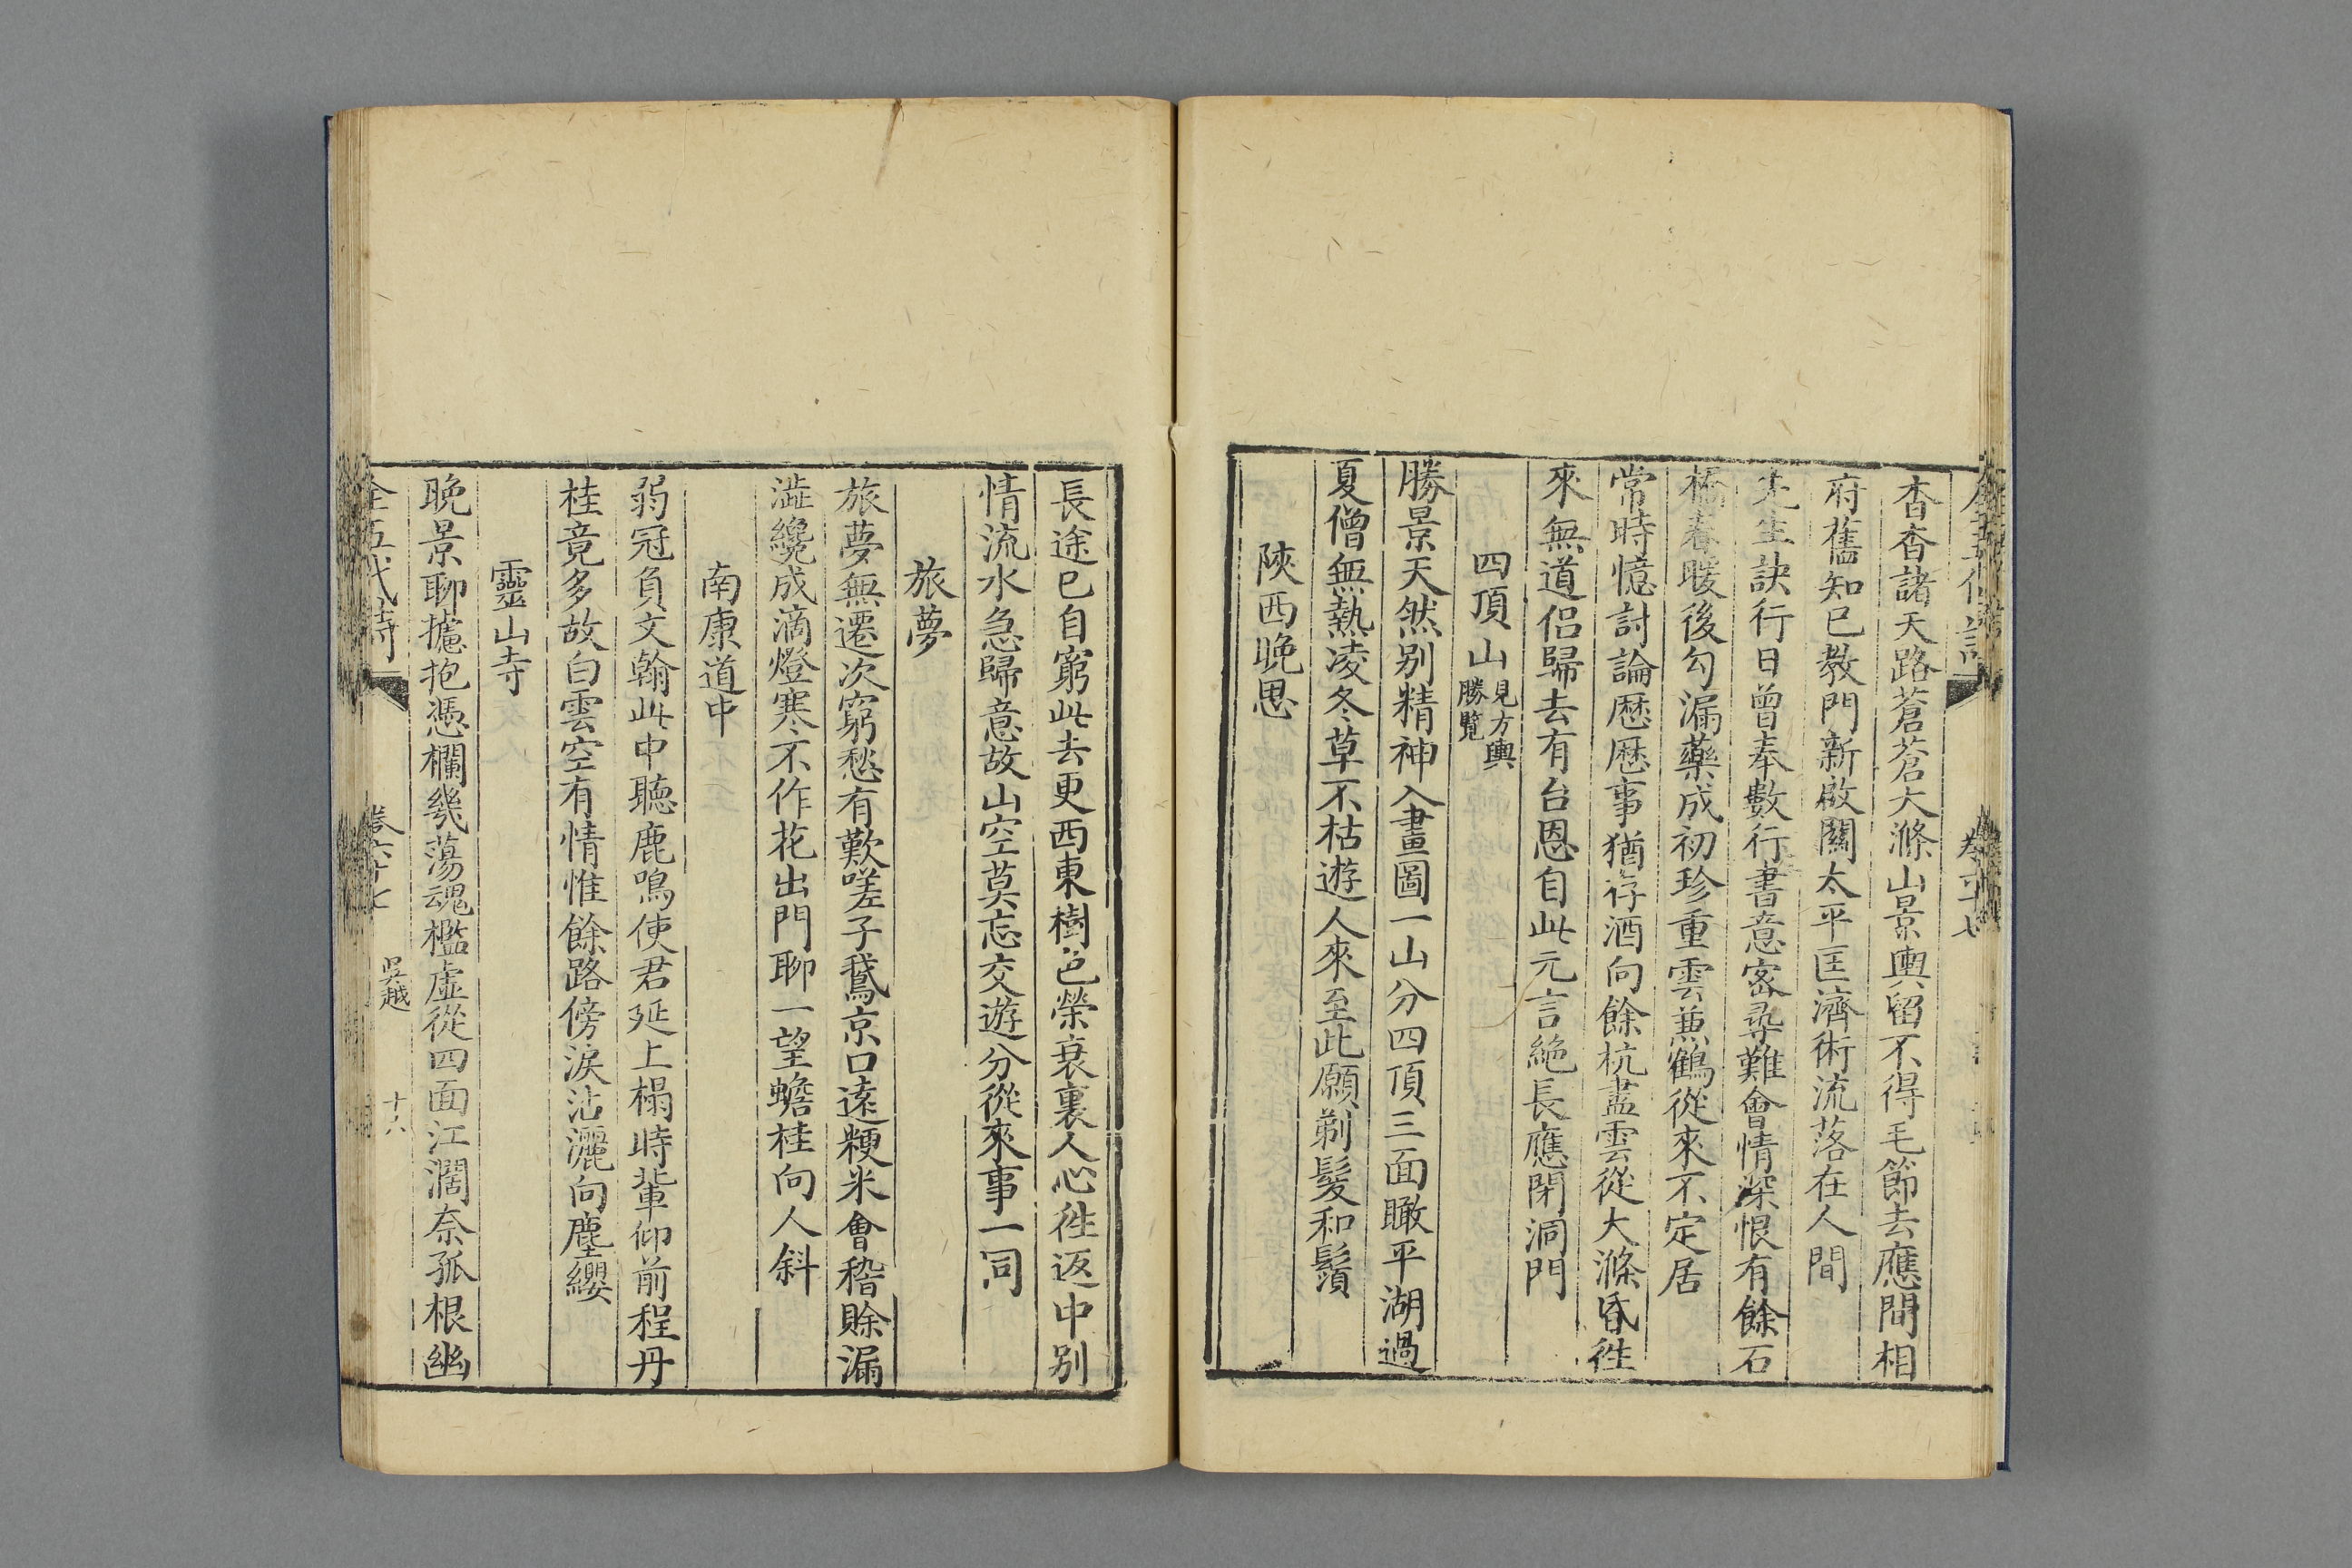 杳杳諸天路蒼蒼大滌山景輿留不得毛節去應間相
府舊知已教門新啟關太平匡濟術流落在人間
先生訣行日曾奉數行書意密尋難會情深恨有餘石
橋春暖後勾漏藥成初珍重雲兼鶴從來不定居
常時憶討論歷歷事猶存酒向餘杭盡雲從大滌昏徃
來無道侶歸去有台恩自此元言絶長應閉洞門
四頂山見方輿
勝覽
勝景天然别精神入畫圖一山分四頂三面瞰平湖過
夏僧無熱凌冬草不枯遊人來至此願剃髮和鬚
陜西晚思
長途已自窮此去更西東樹色榮衰裏人心徃返中别
情流水急歸意故山空莫忘交遊分從來事一同
旅夢
旅夢無遷次窮愁有歎嗟子鵞京口遠粳米會稽賖漏
澁纔成滴燈寒不作花出門聊一望蟾桂向人斜
南康道中
弱冠負文翰此中聽鹿鳴使君延上榻時輩仰前程丹
桂竟多故白雲空有情惟餘路傍淚沾灑向塵纓
靈山寺
晚景聊攄抱憑欄幾蕩魂檻虛從四面江濶奈孤根幽
全五代詩 卷六十七 吳越 十六